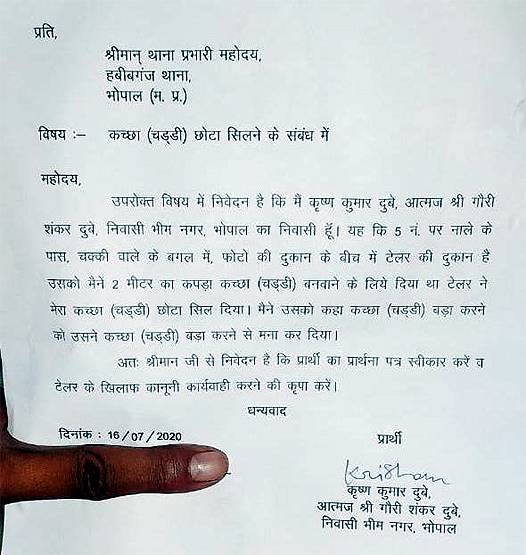 प्रति,
श्रीमान् थाना प्रभारी महोदय,
हबीबगंज थाना,
भोपाल (म. प्र.)
विषय :– कच्छा (चड्डी) छोटा सिलने के संबंध में
महोदय,
उपरोक्त विषय में निवेदन है कि मैं कृष्ण कुमार दुबे, आत्मज श्री गौरी
शंकर दुबे, निवासी भीम नगर, भोपाल का निवासी हूँ। यह कि 5 नं. पर नाले के
पास, चक्की वाले के बगल में, फोटो की दुकान के बीच में टेलर की दुकान है
उसको मैनें 2 मीटर का कपड़ा कच्छा (चड्डी) बनवाने के लिये दिया था टेलर ने
मेरा कच्छा (चड्डी) छोटा सिल दिया। मैने उसको कहा कच्छा (चड्डी) बड़ा करने
को उसने कच्छा (चड्डी) बड़ा करने से मना कर दिया।
अतः श्रीमान जी से निवेदन है कि प्रार्थी का प्रार्थना पत्र स्वीकार करें व
टेलर के खिलाफ कानूनी कार्यवाही करने की कृपा करें।
धन्यवाद
दिनांक : 16/07/2020 प्रार्थी
Krishan
कृष्ण कुमार दुबे,
आत्मज श्री गौरी शंकर दुबे,
निवासी भीम नगर, भोपाल